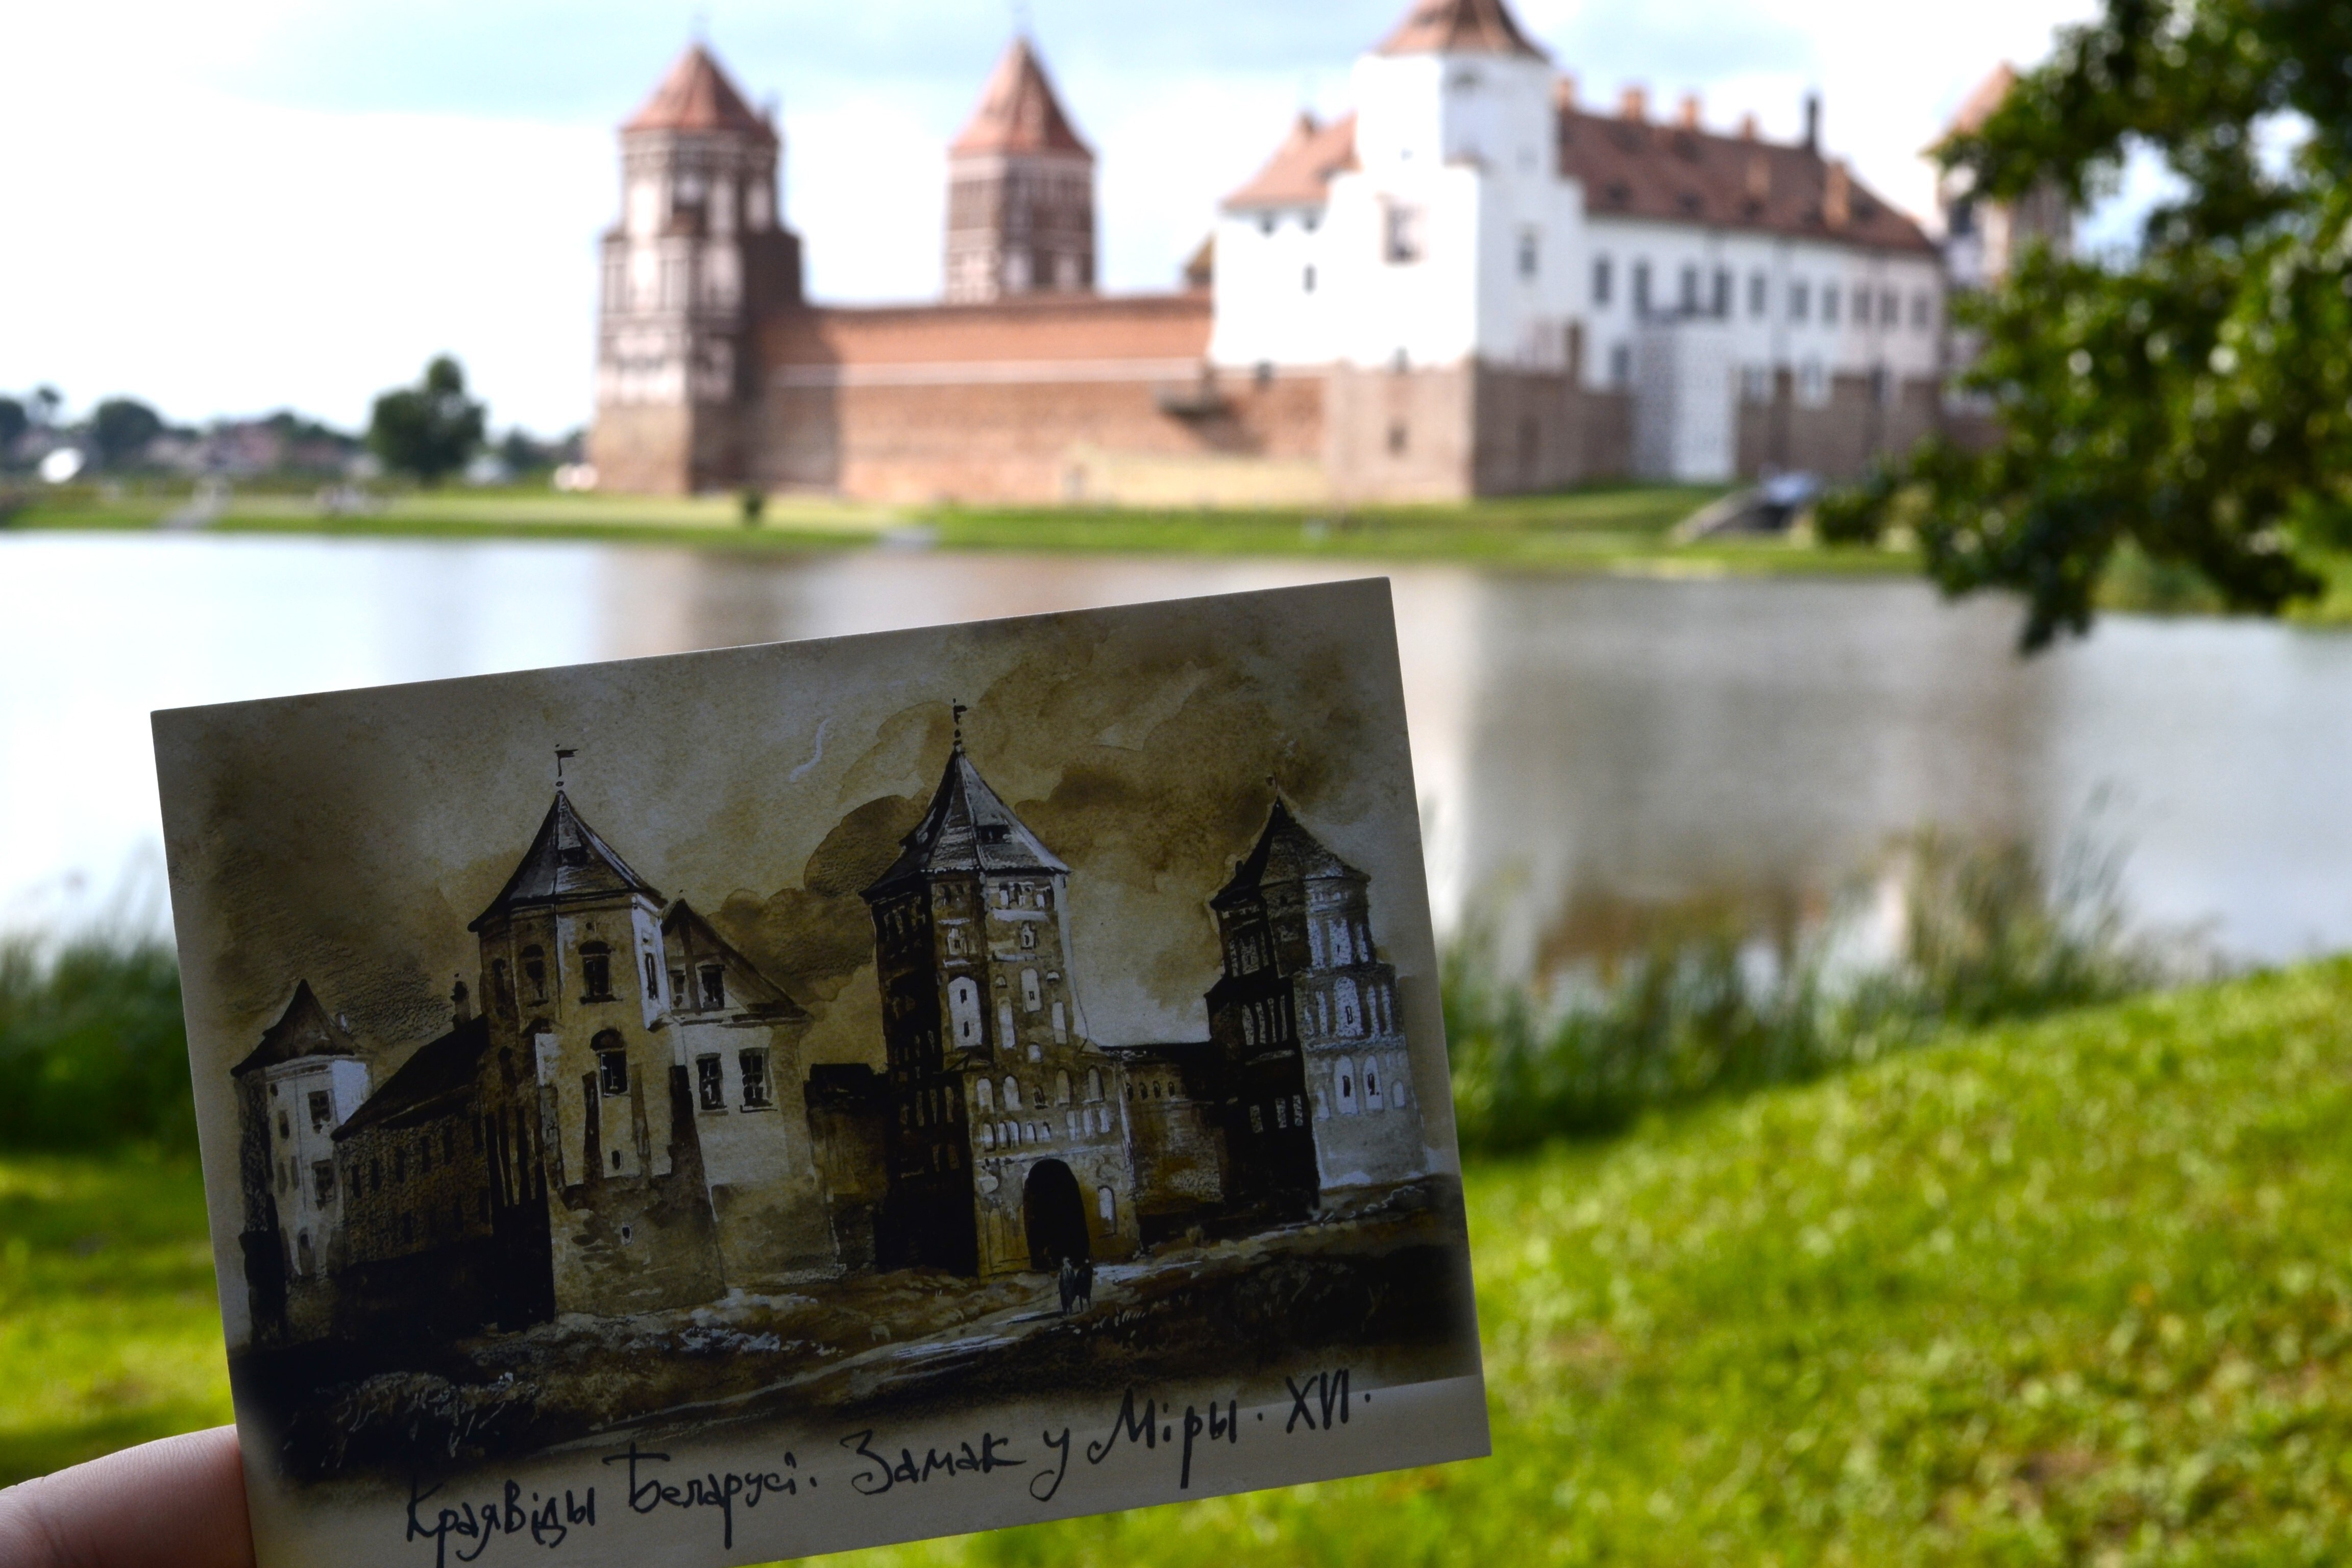 Краявіды Беларусі. Замак у Міры. XVI.